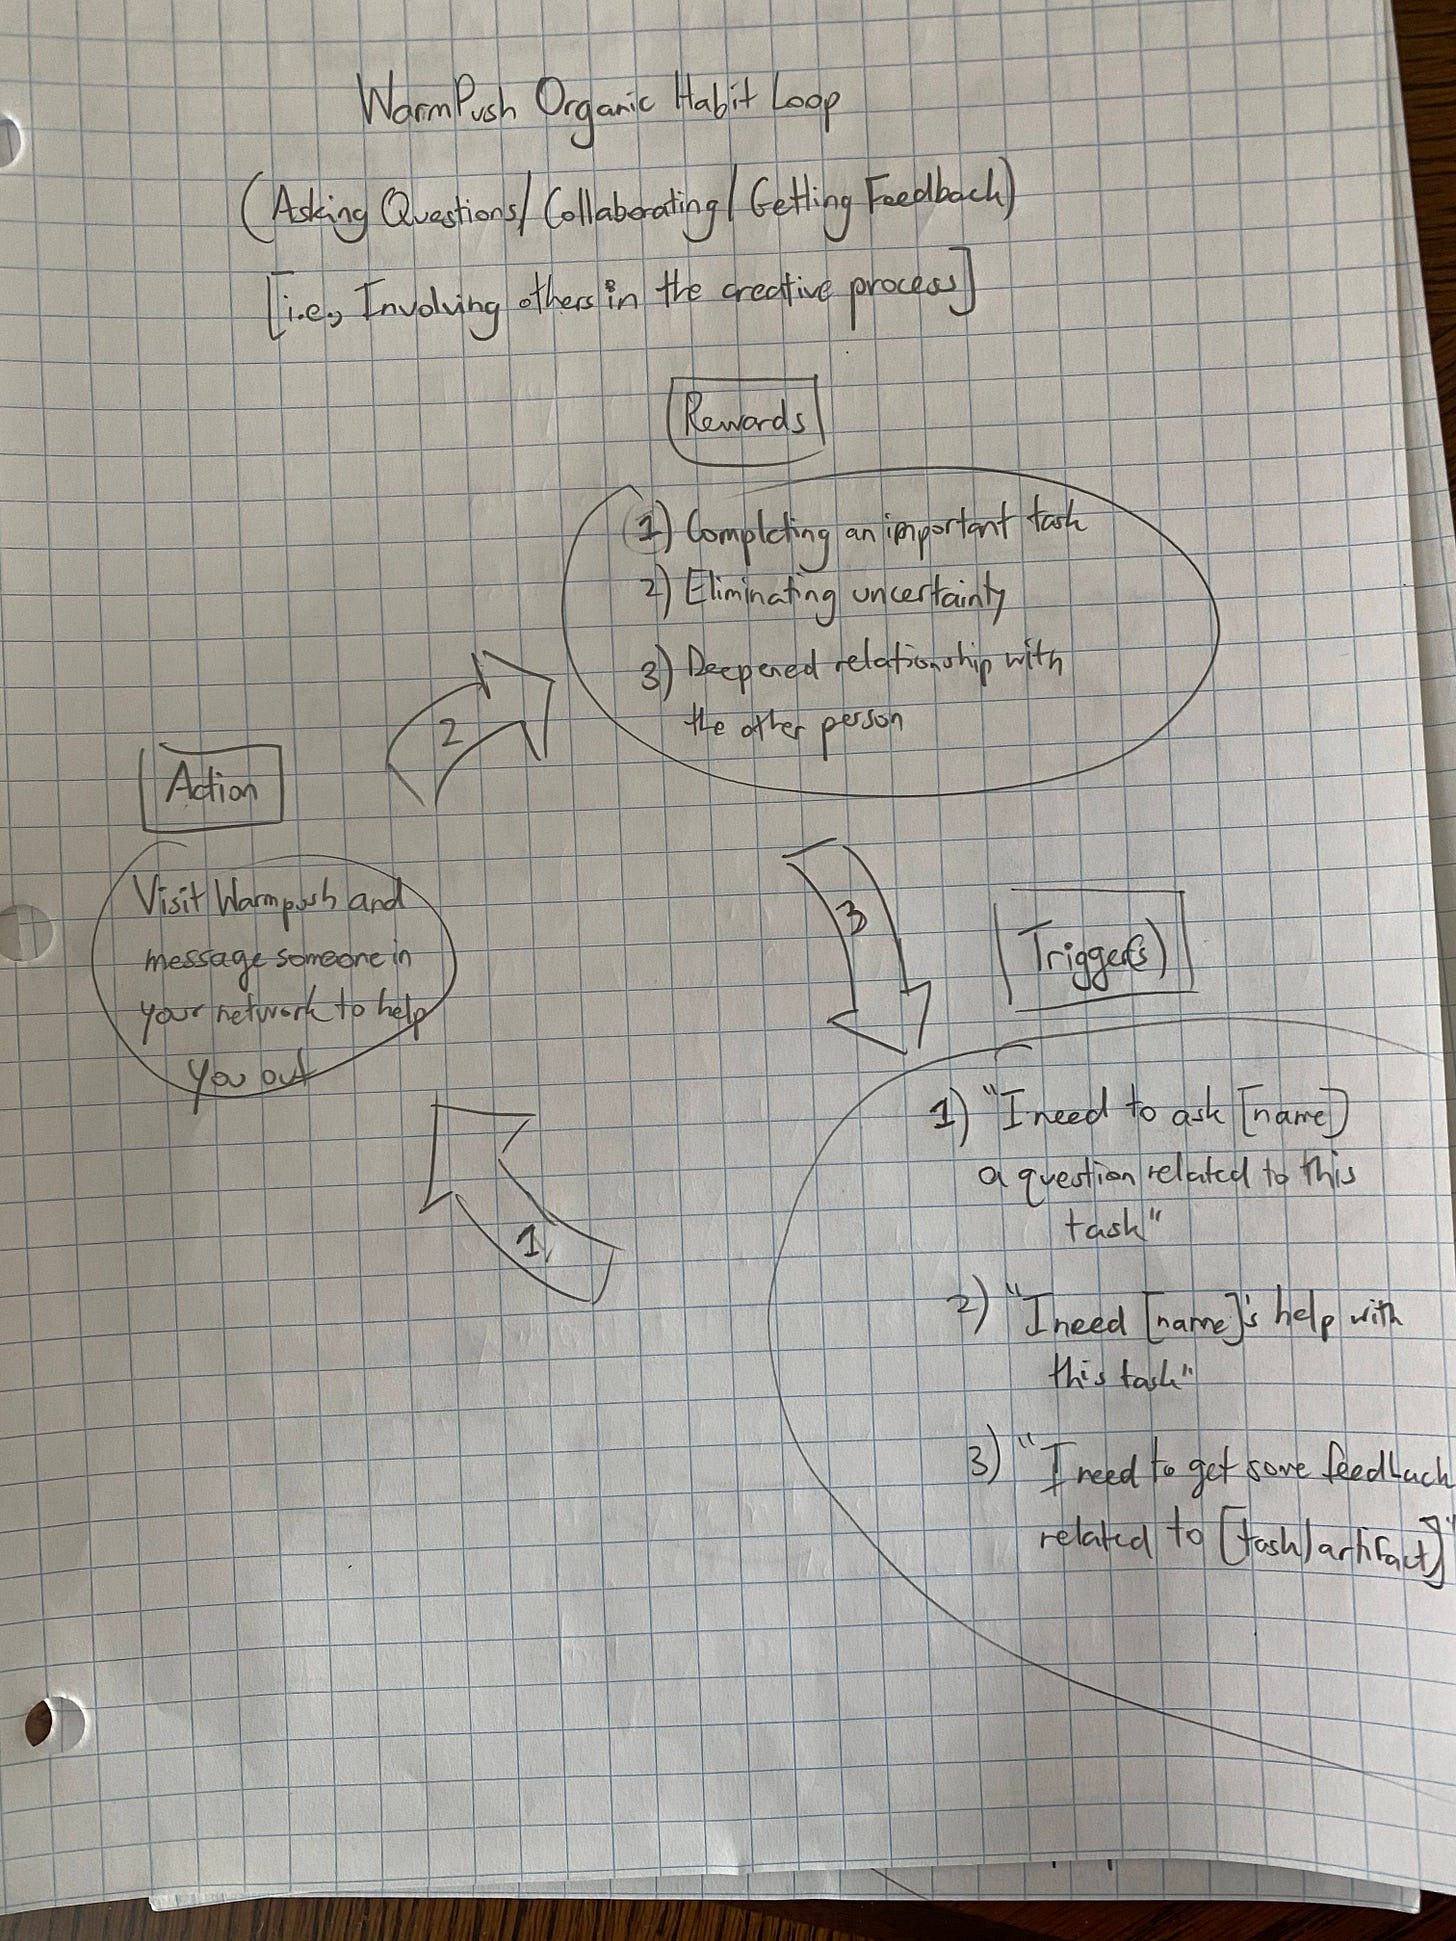 WarmPush Organic Habit Loop
(Asking Questions/Collaborating/Getting Feedback)
[i.e., Involving others in the creative process]
Rewards
1) Completing an important task
2) Eliminating uncertainty
3) Deepened relationship with
the other person
2
Action
Visit Warmpush and
message someone in
your network to help
you out
3
Trigger(s)
1) "I need to ask [name]
a question related to this
task"
2) "I need [name]'s help with
this task"
3) "I need to get some feedback
related to [task/artifact]"
1